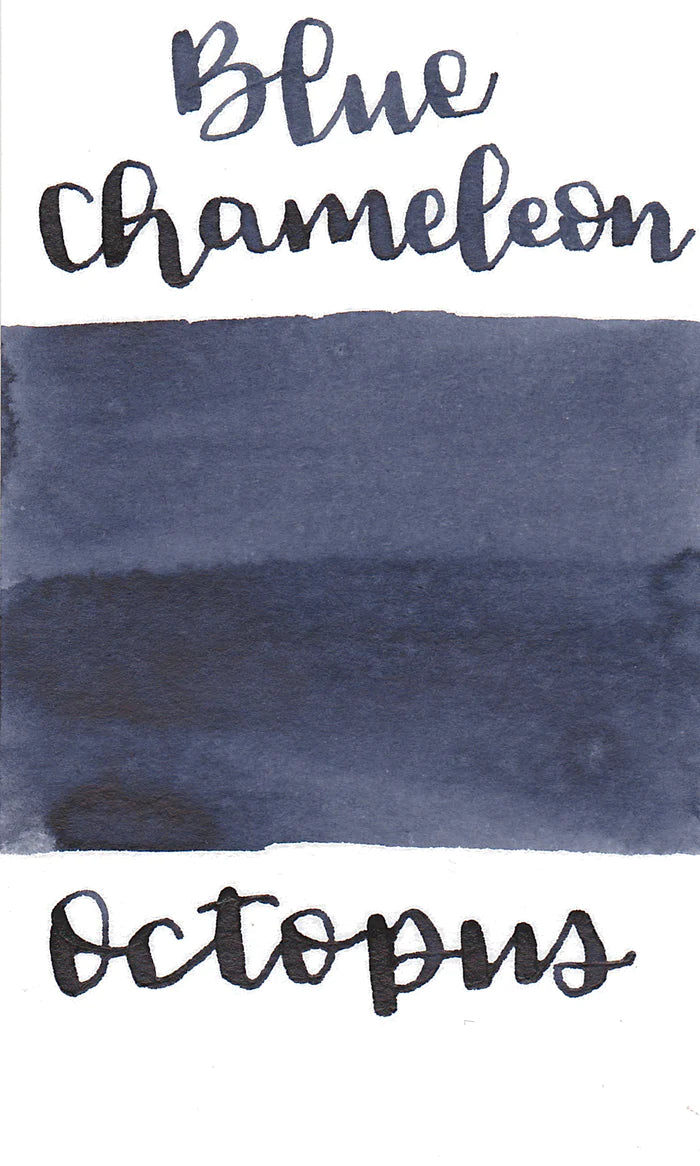 Blue
Chameleon
Octopus